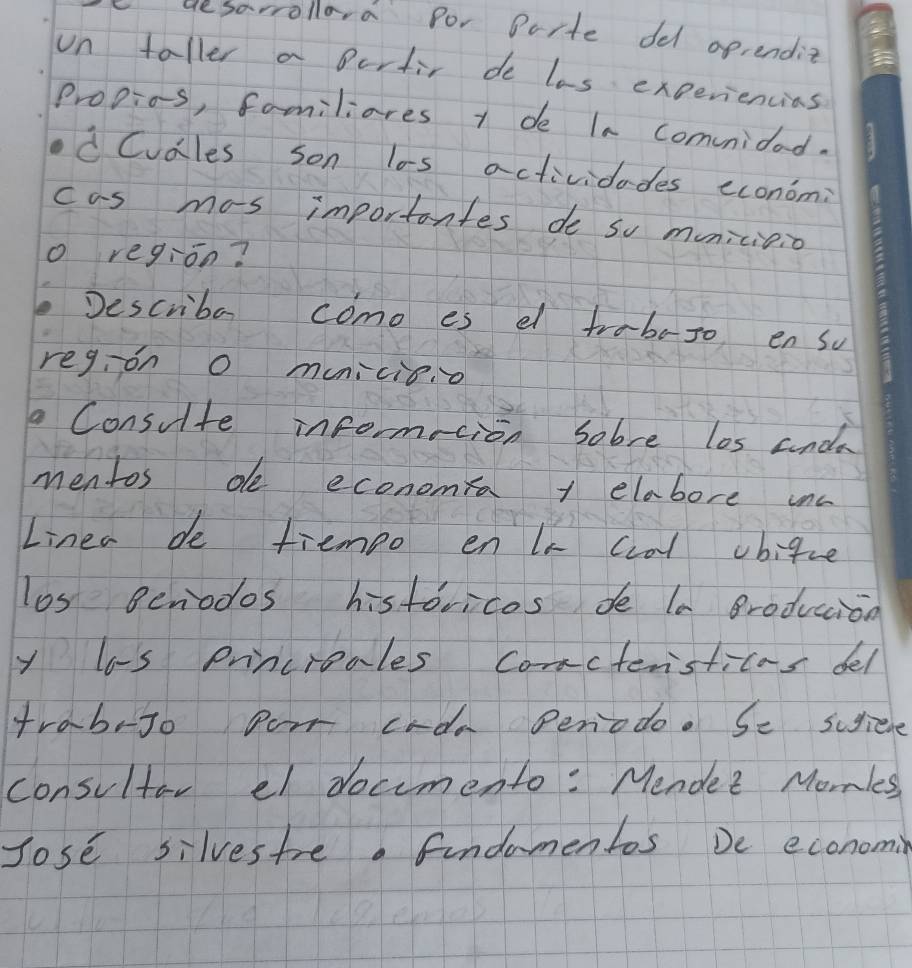 Se desarrollará Por Parte del aprendiz
un taller a Partir de las experiencias
Propias, familiares y de la comunidad.
• ¿ Cuáles son las actividades económi
cas mas importantes de su municipio
o región?
• Describa cómo es el trabajo en su
región o municipio
• Consulte información sobre los funda
mentos de economía y elabore una
Linea de tiempo en la cual ubique
los periodos históricos de la Producción
y las Principales caracteristicas del
trabajo Para cada Periodo. Se sugiere
consultar el documento: Mendez Morales
José silvestre. fundamentos De economia